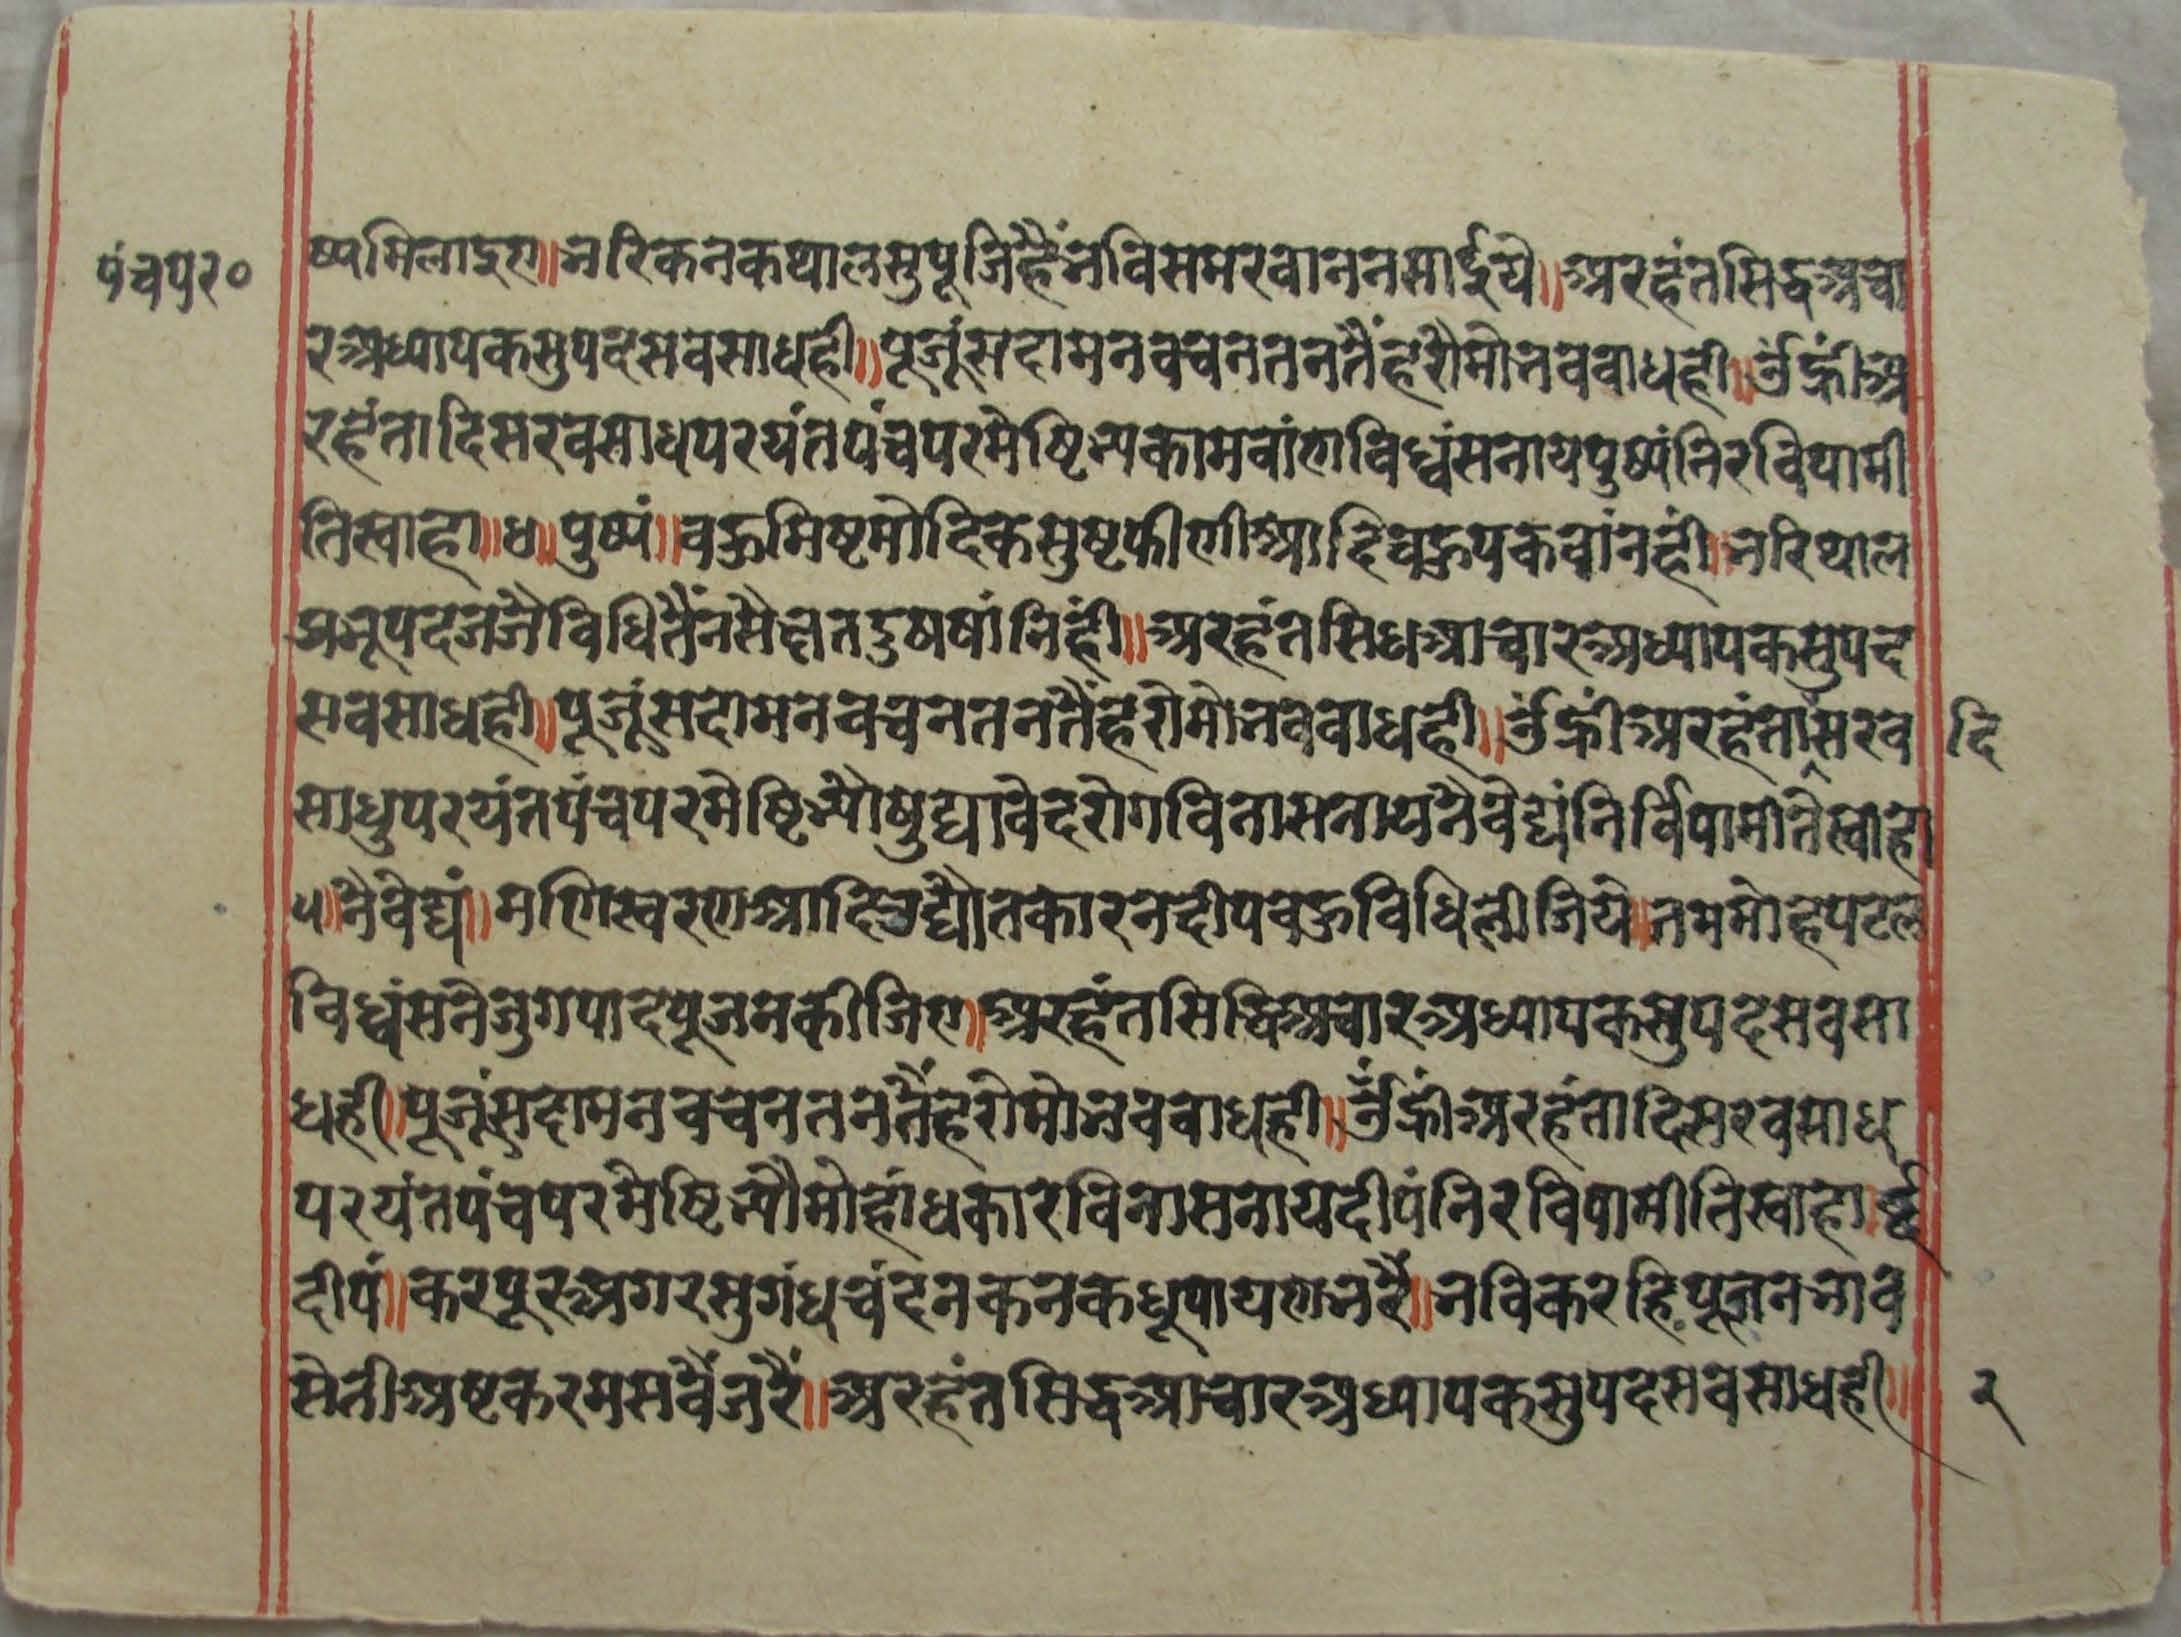 पंचपर०
ष्पमिलाइए॥भरिकनकथालसुपूजिहैंभविसमरवाननमाईये॥अरहंतसिद्धअचा
रअध्यापकसुपदसवसाधही॥पूजूंसदामनवचनतनतैंहरौमोभववाधही॥ॐह्रींअ
रहंतादिसरवसाधपरयंतपंचपरमेष्टिभ्यकामवांणविध्वंसनायपुष्पंनिरविपामी
तिस्वाहा॥४॥पुष्पं॥वहुमिष्टमोदिकसुष्टफीणीआदिवहुपकवांनहीं॥भरिथाल
प्रभूपदजजैविधितैंनसैछुतदुठषांनिहीं॥अरहंतसिधआचारअध्यापकसुपद
सवसाधही॥पूजूंसदामनवचनतनतैंहरोमोभववाधही॥ॐह्रींअरहंतासरव दि
साधुपरयंतपंचपरमेष्टिभ्योषुद्यावेदरोगविनासनायनैवेद्यंनिर्विपामीतेस्वाहा
५॥नैवेद्यं॥मणिस्वरणआदिउद्यौतकारनदीपवहुविधिलीजिये॥तममोहपटल
विध्वंसनैजुगपादपूजनकीजिए॥अरहंतसिधिअचारअध्यापकसुपदसवसा
धही॥पूजूंसदामनवचनतनतैंहरोमोभववाधही॥ॐह्रींअरहंतादिसरवसाध
परयंतपंचपरमेष्टिभ्यौमोहांधकारविनासनायदीपंनिरविपामीतिस्वाहा॥६॥
दीपं॥करपूरअगरसुगंधचंदनकनकधूपायणभरैं॥भविकरहिपूजनभाव
सेतीअष्टकरमसवैंजरैं॥अरहंतसिद्धआचारअध्यापकसुपदसवसाधही॥ २